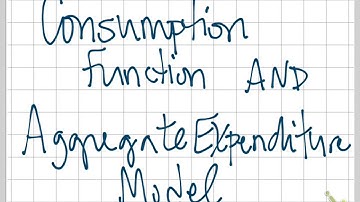 Consumption
Function AND
Aggregate Expenditure
Model